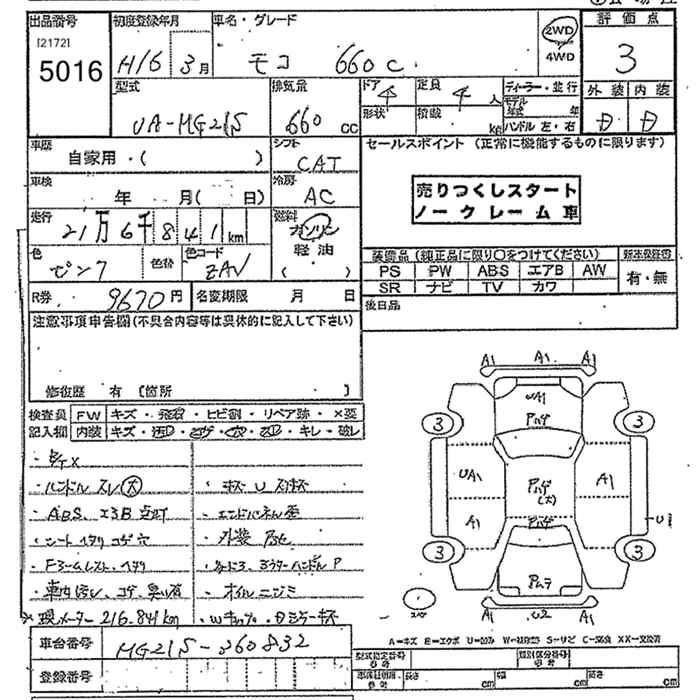 出品番号
[2172]
5016
初度登録年月
H16年 3月
車名・グレード
モコ 660 C
2WD
4WD
評価点
3
外装 内装
D D
型式
UA-MG21S
排気量
660 cc
ドア 4
定員 4 人
形状
積載 kg
ディーラー・並行
モデル年式 年
ハンドル 左・右
車歴
自家用・( )
シフト
CAT
車検
年 月( 日)
冷房
AC
走行
21万6千841km
燃料
ガソリン
軽油
( )
色
ピンク
色替
色コード
ZAV
R券 9670円
名変期限 月 日
セールスポイント (正常に機能するものに限ります)
売りつくしスタート
ノークレーム車
装備品 (純正品に限り○をつけてください)
新車保証書
PS PW ABS エアB AW
SR ナビ TV カワ
有・無
後日品
注意事項申告欄(不具合内容等は具体的に記入して下さい)
修復歴 有 [箇所 ]
検査員 FW キズ・飛石・ヒビ割・リペア跡・×要
記入欄 内装 キズ・汚れ・コゲ・穴・スレ・キレ・破レ
・ハンドル スレ(大)
・キズ U スリキズ
・ABS、エアB 点灯
・シート ヘタリ コゲ 穴
・外装
・車内汚レ、コゲ、臭い有
・オイルニジミ
※現メーター 216.841km
車台番号
MG21S-360832
登録番号
A1 A1 A1
UA1
Aハゲ
3 3
UA1
Aハゲ
(大)
A1
A1
Aハゲ
U1
3 3
Aムラ
A1 U2 A1
A=キズ E=エクボ U=凹み W=補修跡 S=サビ C=腐食 XX=交換済
型式指定番号
参考
類別区分番号
参考
長さ cm
幅 cm
高さ cm